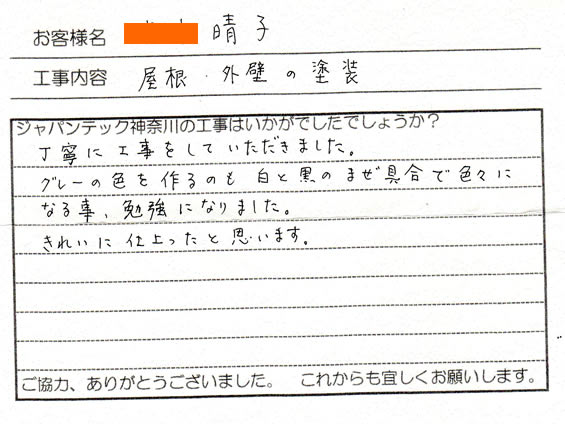 お客様名 晴子
工事内容 屋根・外壁の塗装
ジャパンテック神奈川の工事はいかがでしたでしょうか?
丁寧に工事をしていただきました。
グレーの色を作るのも白と黒のまぜ具合で色々に
なる事、勉強になりました。
きれいに仕上ったと思います。
ご協力、ありがとうございました。 これからも宜しくお願いします。